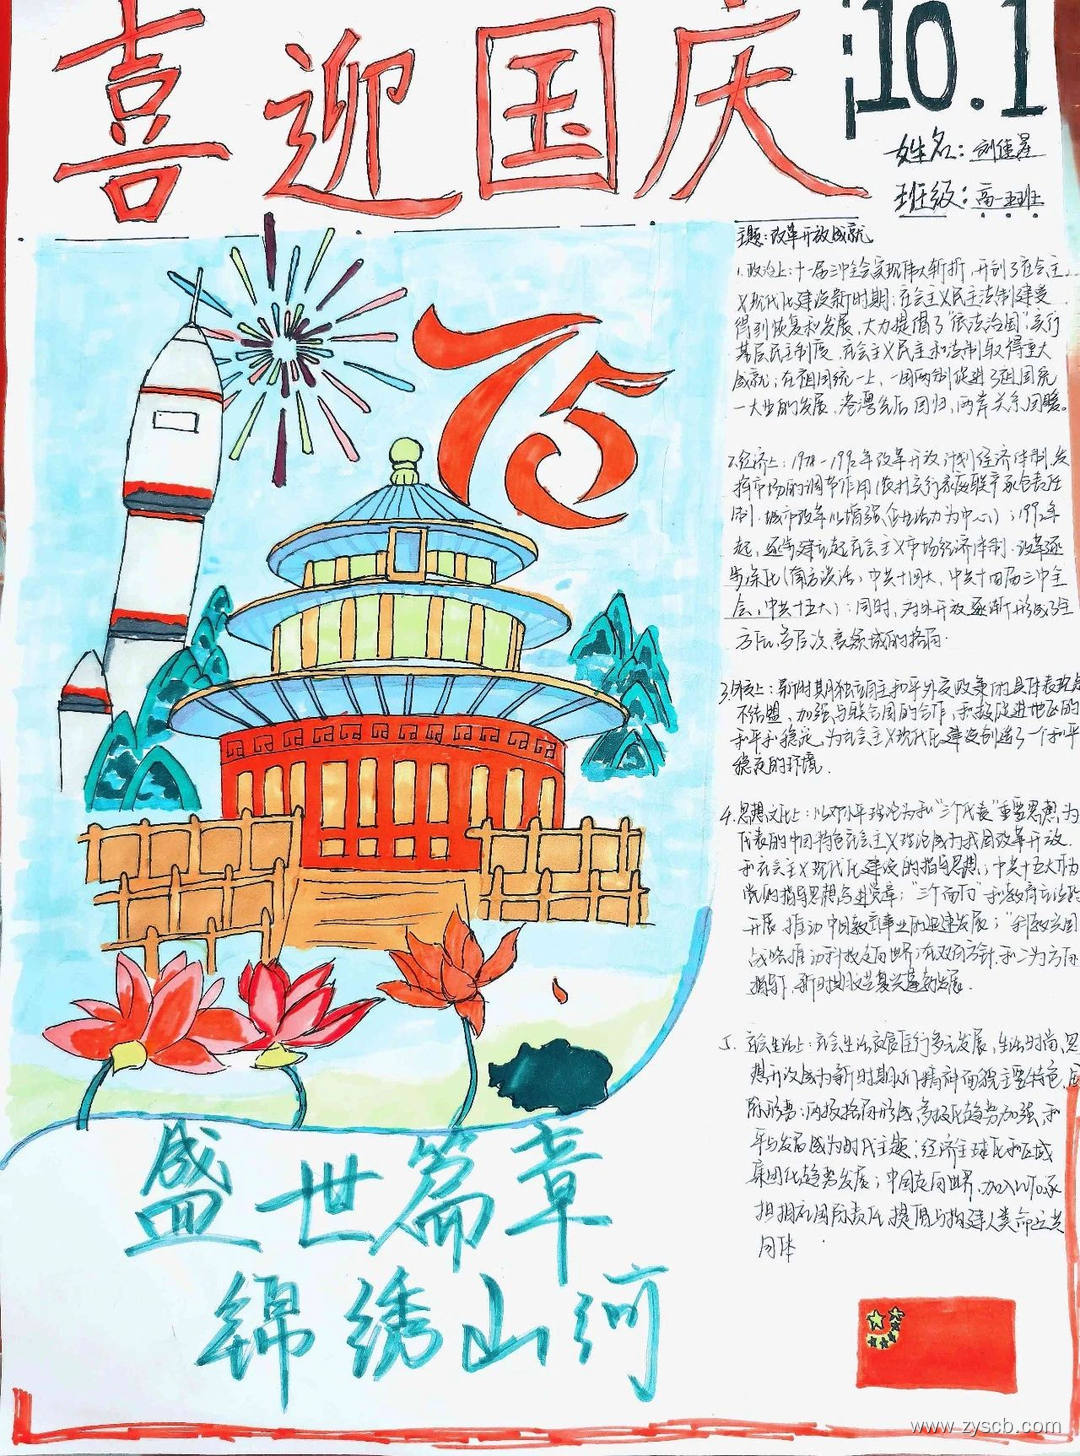 喜迎国庆
10.1
姓名：刘佳星
班级：高一五班
75
主题：改革开放成就
1.政治上：十一届三中全会实现伟大转折，开创了社会主
义现代化建设新时期；社会主义民主法制建设
得到恢复和发展，大力提倡了"依法治国"实行
基层民主制度，社会主义民主和法制取得重大
成就；在祖国统一上，一国两制促进了祖国统
一大业的发展，港澳先后回归，两岸关系回暖。
2.经济上：1978-1992年改革开放，计划经济体制，发
挥市场的调节作用，农村实行家庭联产承包责任
制，城市改革以增强企业活力为中心）；1992年
起，逐步建立起社会主义市场经济体制，改革逐
步深化（南方谈话，中共十四大，中共十四届三中全
会，中共十五大）；同时，对外开放逐渐形成了全
方位、多层次、宽领域的格局.
3.外交上：新时期独立自主和平外交政策的具体表现是
不结盟，加强与联合国的合作，积极促进地区的
和平和稳定，为社会主义现代化建设创造了一个和平
稳定的环境.
4.思想文化上：以邓小平理论为和"三个代表"重要思想，为
代表的中国特色社会主义理论成为我国改革开放.
和社会主义现代化建设的指导思想；中共十五大作为
党的指导思想写进党章；"三个面向"和教育立法的
开展，推动中国教育事业的迅速发展；"科教兴国
战略推动科技走向世界；在双百方针，和二为方向
指导下，新时期文学复兴蓬勃发展.
5.社会生活上：社会生活发展呈多元发展，生活时尚，思
想开放成为新时期人们精神面貌主要特色，国
际形势：两极格局形成，多极化趋势加强，和
平与发展成为时代主题；经济全球化和区域
集团化趋势发展；中国走向世界，加入WTO，承
担相应国际责任，提倡与构建人类命运共
同体.
盛世篇章
锦绣山河
www.zyscb.com